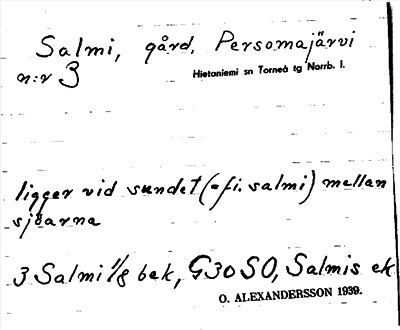 Salmi, gård, Persomajärvi
n:r 3
Hietaniemi sn Torneå tg Norrb. l.
ligger vid sundet (= fi. salmi) mellan
sjöarna
3 Salmi 1/8 bek, G30SO, Salmis ek
O. ALEXANDERSSON 1939.